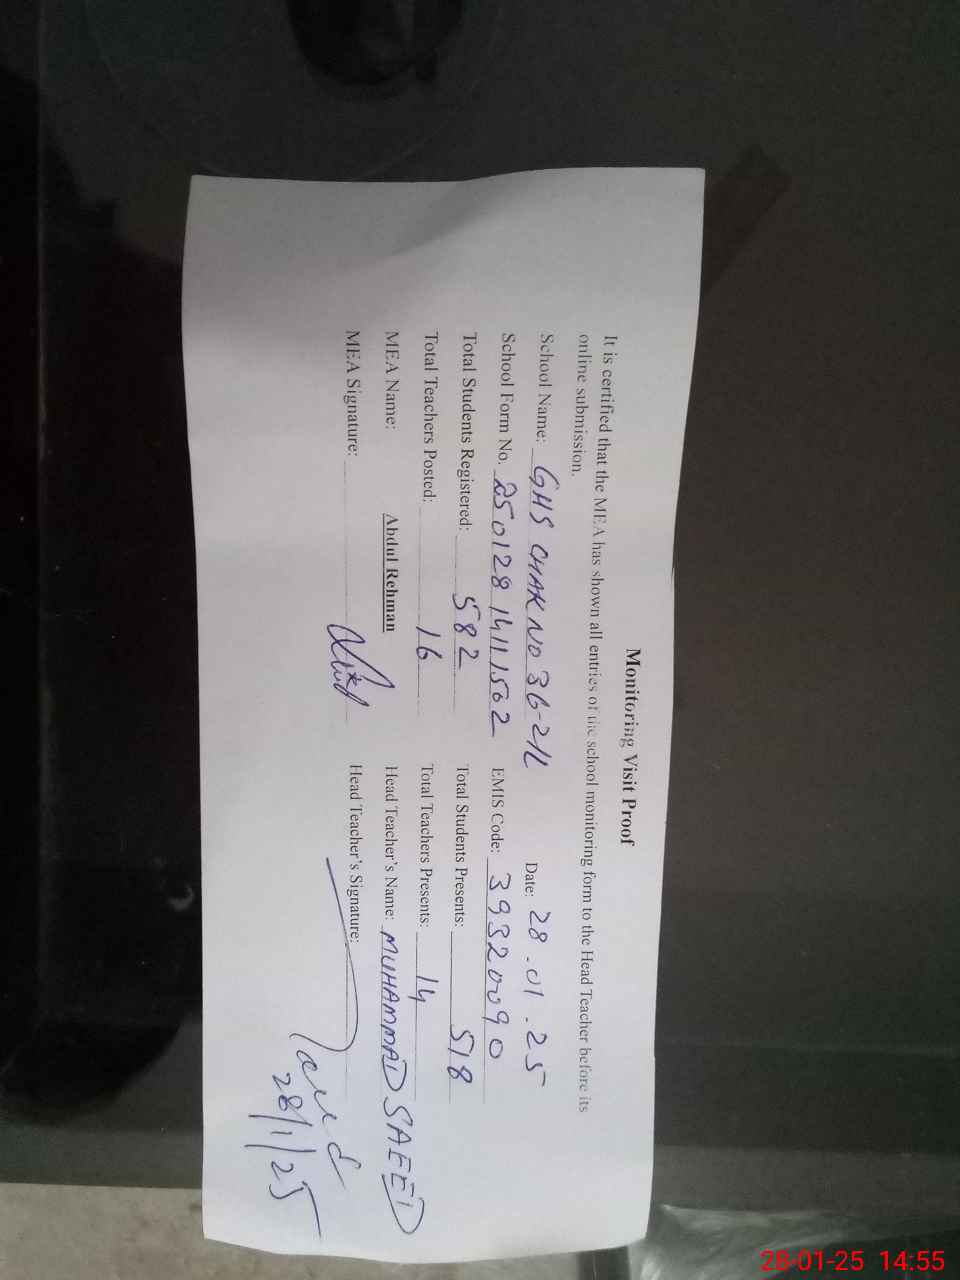 Monitoring Visit Proof
It is certified that the MEA has shown all entries of the school monitoring form to the Head Teacher before its
online submission.
School Name: GHS CHAK NO 36-2/L Date: 28.01.25
School Form No. 250128 14111502 EMIS Code: 39320090
Total Students Registered: 582 Total Students Presents: 518
Total Teachers Posted: 16 Total Teachers Presents: 14
MEA Name: Abdul Rehman Head Teacher's Name: MUHAMMAD SAEED
MEA Signature: Head Teacher's Signature:
28/1/25
28-01-25 14:55